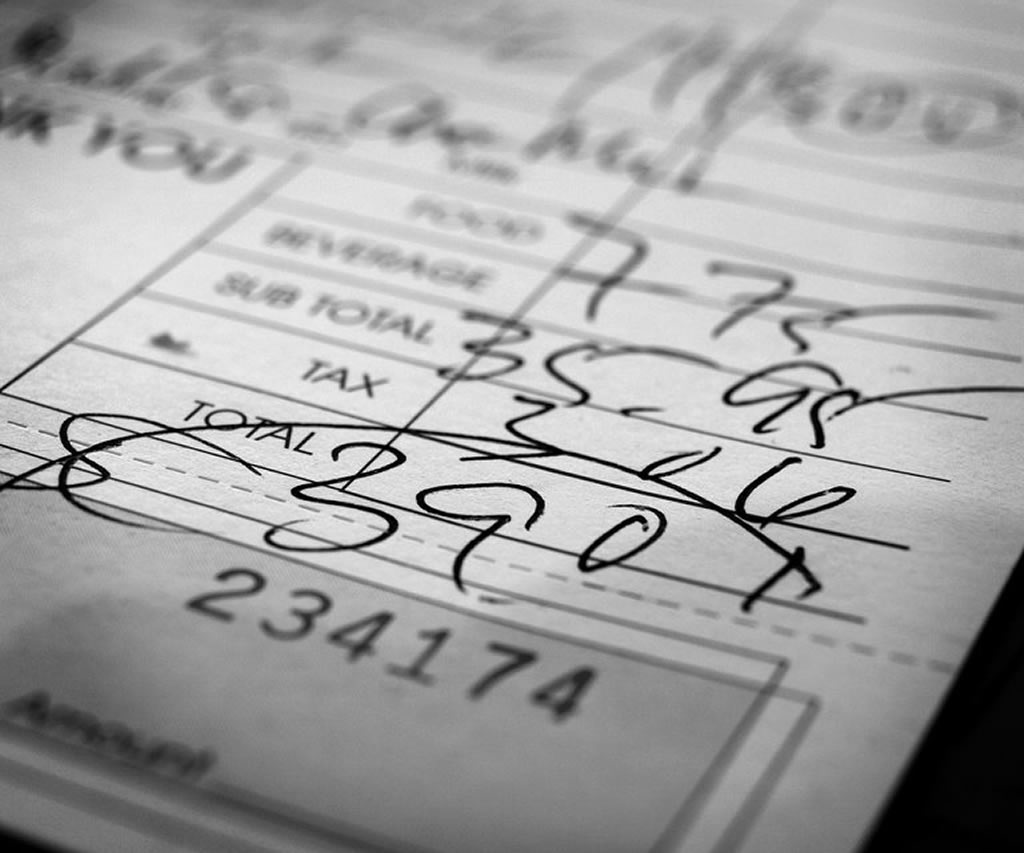 NK YOU
FOOD
BEVERAGE 7 75
SUB TOTAL 35.95
TAX 3 06
TOTAL 39 01
234174
Amount